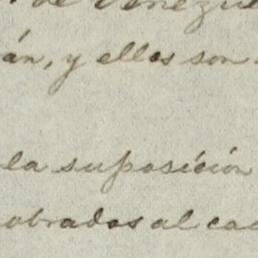 de Venezue
án, y ellos son
la suposición
obrados al ca